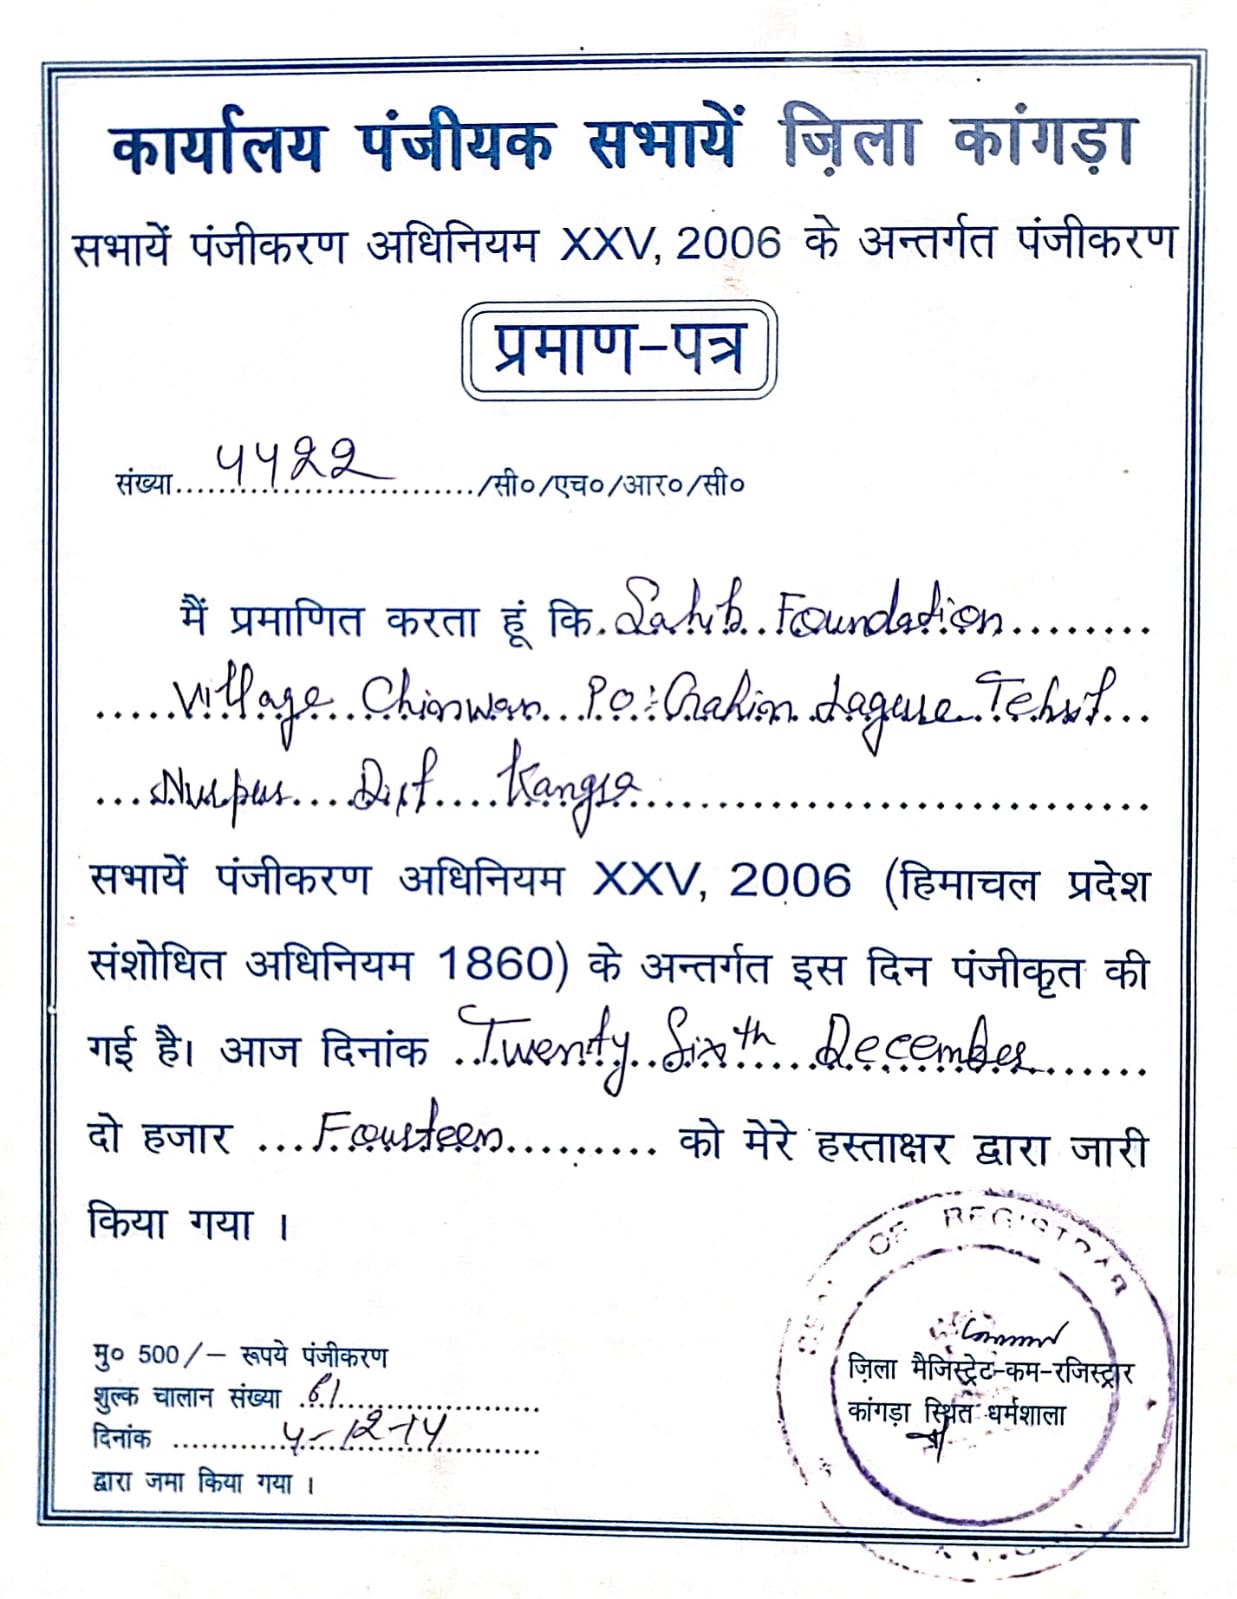 कार्यालय पंजीयक सभायें ज़िला कांगड़ा
सभायें पंजीकरण अधिनियम XXV, 2006 के अन्तर्गत पंजीकरण
प्रमाण-पत्र
संख्या 4422 /सी०/एच०/आर०/सी०
मैं प्रमाणित करता हूं कि Sahib Foundation
Village Chinwan P.O: Tehsil
Nurpur Distt Kangra
सभायें पंजीकरण अधिनियम XXV, 2006 (हिमाचल प्रदेश
संशोधित अधिनियम 1860) के अन्तर्गत इस दिन पंजीकृत की
गई है। आज दिनांक Twenty Sixth December
दो हजार Fourteen को मेरे हस्ताक्षर द्वारा जारी
किया गया ।
OF REGISTRAR
मु० 500/- रूपये पंजीकरण
शुल्क चालान संख्या 61
दिनांक 4-12-14
द्वारा जमा किया गया ।
ज़िला मैजिस्ट्रेट-कम-रजिस्ट्रार
कांगड़ा स्थित धर्मशाला